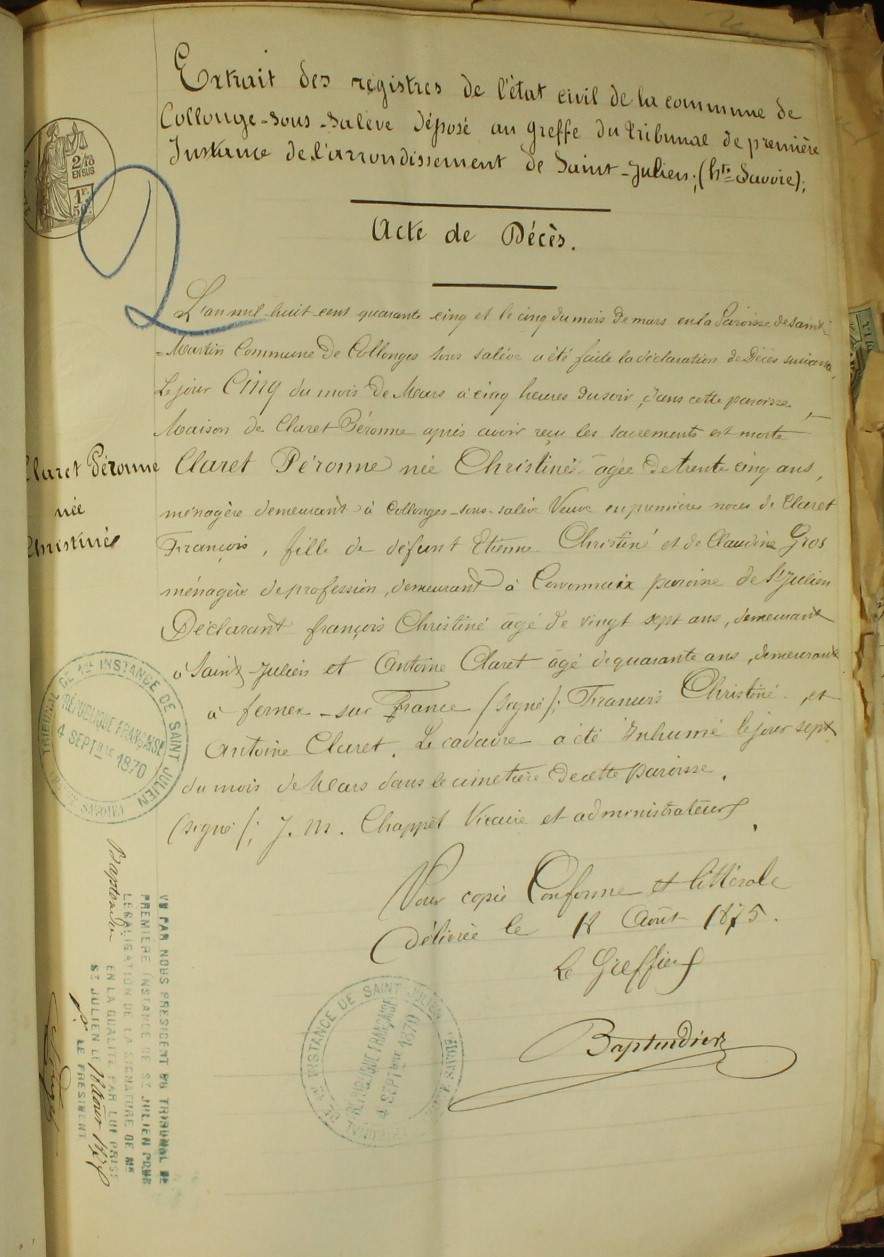 Extrait des registres de l'état civil de la commune de
Collonge-sous-Salève déposé au greffe du tribunal de première
Instance de l'arrondissement de Saint-Julien, (hte Savoie);
2/10
EN SUS
1F
50c
Acte de Décès.
L'an mil-huit-cent quarante-cinq et le cinq du mois de mars en la Paroisse de Saint-
-Martin Commune de Collonges sous salève a été faite la déclaration de Décès suivante.
Le jour Cinq du mois de Mars à cinq heures du soir, dans cette paroisse,
Maison de Claret Péronne après avoir reçu les sacrements est morte
Claret Péronne née Christiné âgée de trente cinq ans,
ménagère demeurant à Collonges-sous-salève Veuve en premières noces de Claret
François, fille de défunt Etienne Christiné et de Claudine Gros
ménagère de profession, demeurant à paroisse de St Julien
Déclarant françois Christiné âgé de vingt sept ans, demeurant
à Saint-Julien et Antoine Claret âgé de quarante ans, demeurant
à ferney-sur France (signé); François Christiné, et
Antoine Claret. Le cadavre a été Inhumé le jour sept
du mois de Mars dans le cimetière de cette Paroisse.
(signé); J. M. Chappet Vicaire et administrateur.
Claret Péronne
née
Christiné
TRIBUNAL DE 1RE INSTANCE DE SAINT JULIEN
(HTE SAVOIE)
RÉPUBLIQUE FRANÇAISE
4 SEPTbre 1870
Pour copie Conforme et littérale
Délivrée le 18 Août 1875.
Le Greffier
Baptendier
DE 1RE INSTANCE DE SAINT JULIEN
RÉPUBLIQUE FRANÇAISE
4 SEPTbre 1870
VU PAR NOUS PRESIDENT DU TRIBUNAL DE
PREMIERE INSTANCE DE ST JULIEN POUR
LEGALISATION DE LA SIGNATURE DE MR
Baptendier EN LA QUALITE PAR LUI PRISE
ST JULIEN LE
LE PRESIDENT